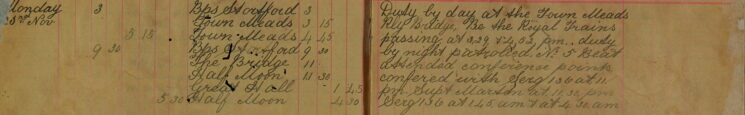 Monday 3 Bps Stortford 3 Duty by day at the Town Meads
23rd Nov. Town Meads 3 15 Rly Bridge, Re the Royal Trains
3 15 Town Meads 4 45 passing at 3.39 & 4.03 pm, duty
9 30 Bps Stortford 9 30 by night patrolled No 5 Beat
The Bridge 11 attended conference points
Half Moon 11 30 confered with Serg 136 at 11
Great Hall 1 45 pm Supt Marson at 11.30 pm
5 30 Half Moon 4 30 Serg 136 at 1.45 am & at 4.30 am